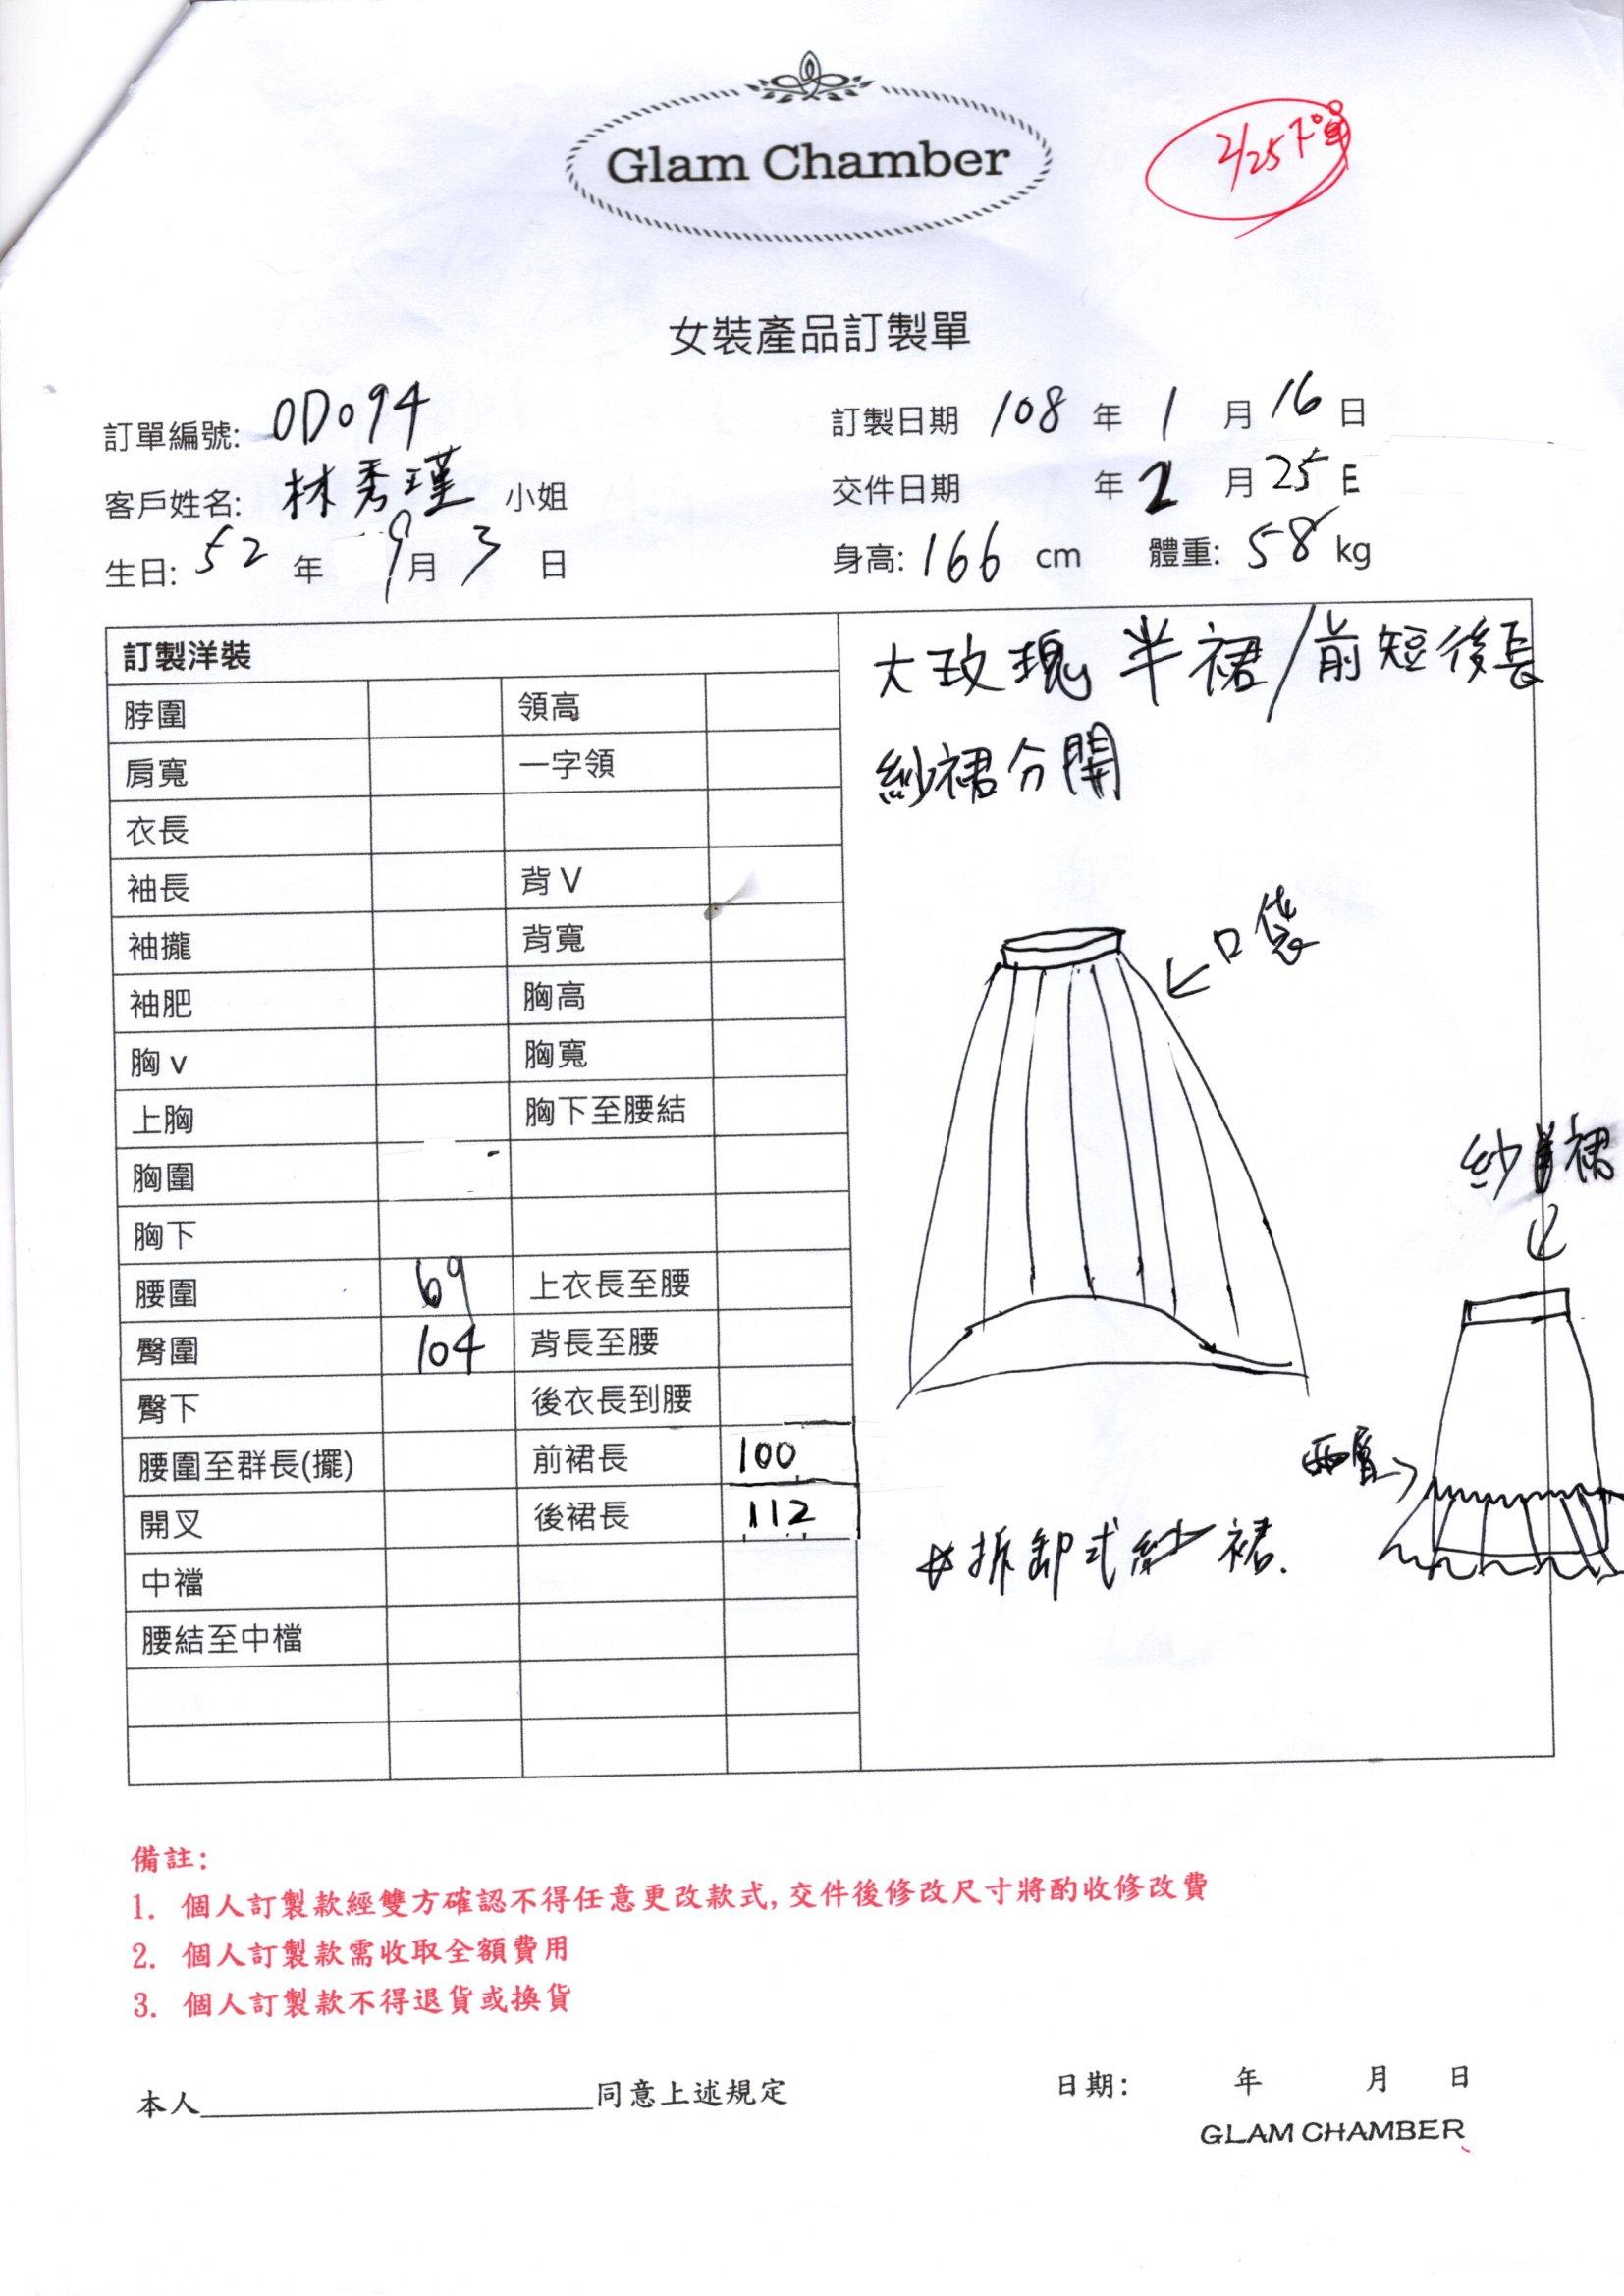 Glam Chamber
2/25下單
女裝產品訂製單
訂單編號: OD094
訂製日期 108 年 1 月 16 日
客戶姓名: 林秀瑾 小姐
交件日期 年 2 月 25 E
生日: 52 年 9月 3 日
身高: 166 cm 體重: 58 kg
訂製洋裝
脖圍 領高
肩寬 一字領
衣長
袖長 背 V
袖攏 背寬
袖肥 胸高
胸 v 胸寬
上胸 胸下至腰結
胸圍
胸下
腰圍 69 上衣長至腰
臀圍 104 背長至腰
臀下 後衣長到腰
腰圍至群長(擺) 前裙長 100
開叉 後裙長 112
中襠
腰結至中檔
大玫瑰半裙/前短後長
紗裙分開
口袋
紗裙
兩層
*拆卸式紗裙.
備註:
1. 個人訂製款經雙方確認不得任意更改款式, 交件後修改尺寸將酌收修改費
2. 個人訂製款需收取全額費用
3. 個人訂製款不得退貨或換貨
本人____________________同意上述規定
日期: 年 月 日
GLAM CHAMBER